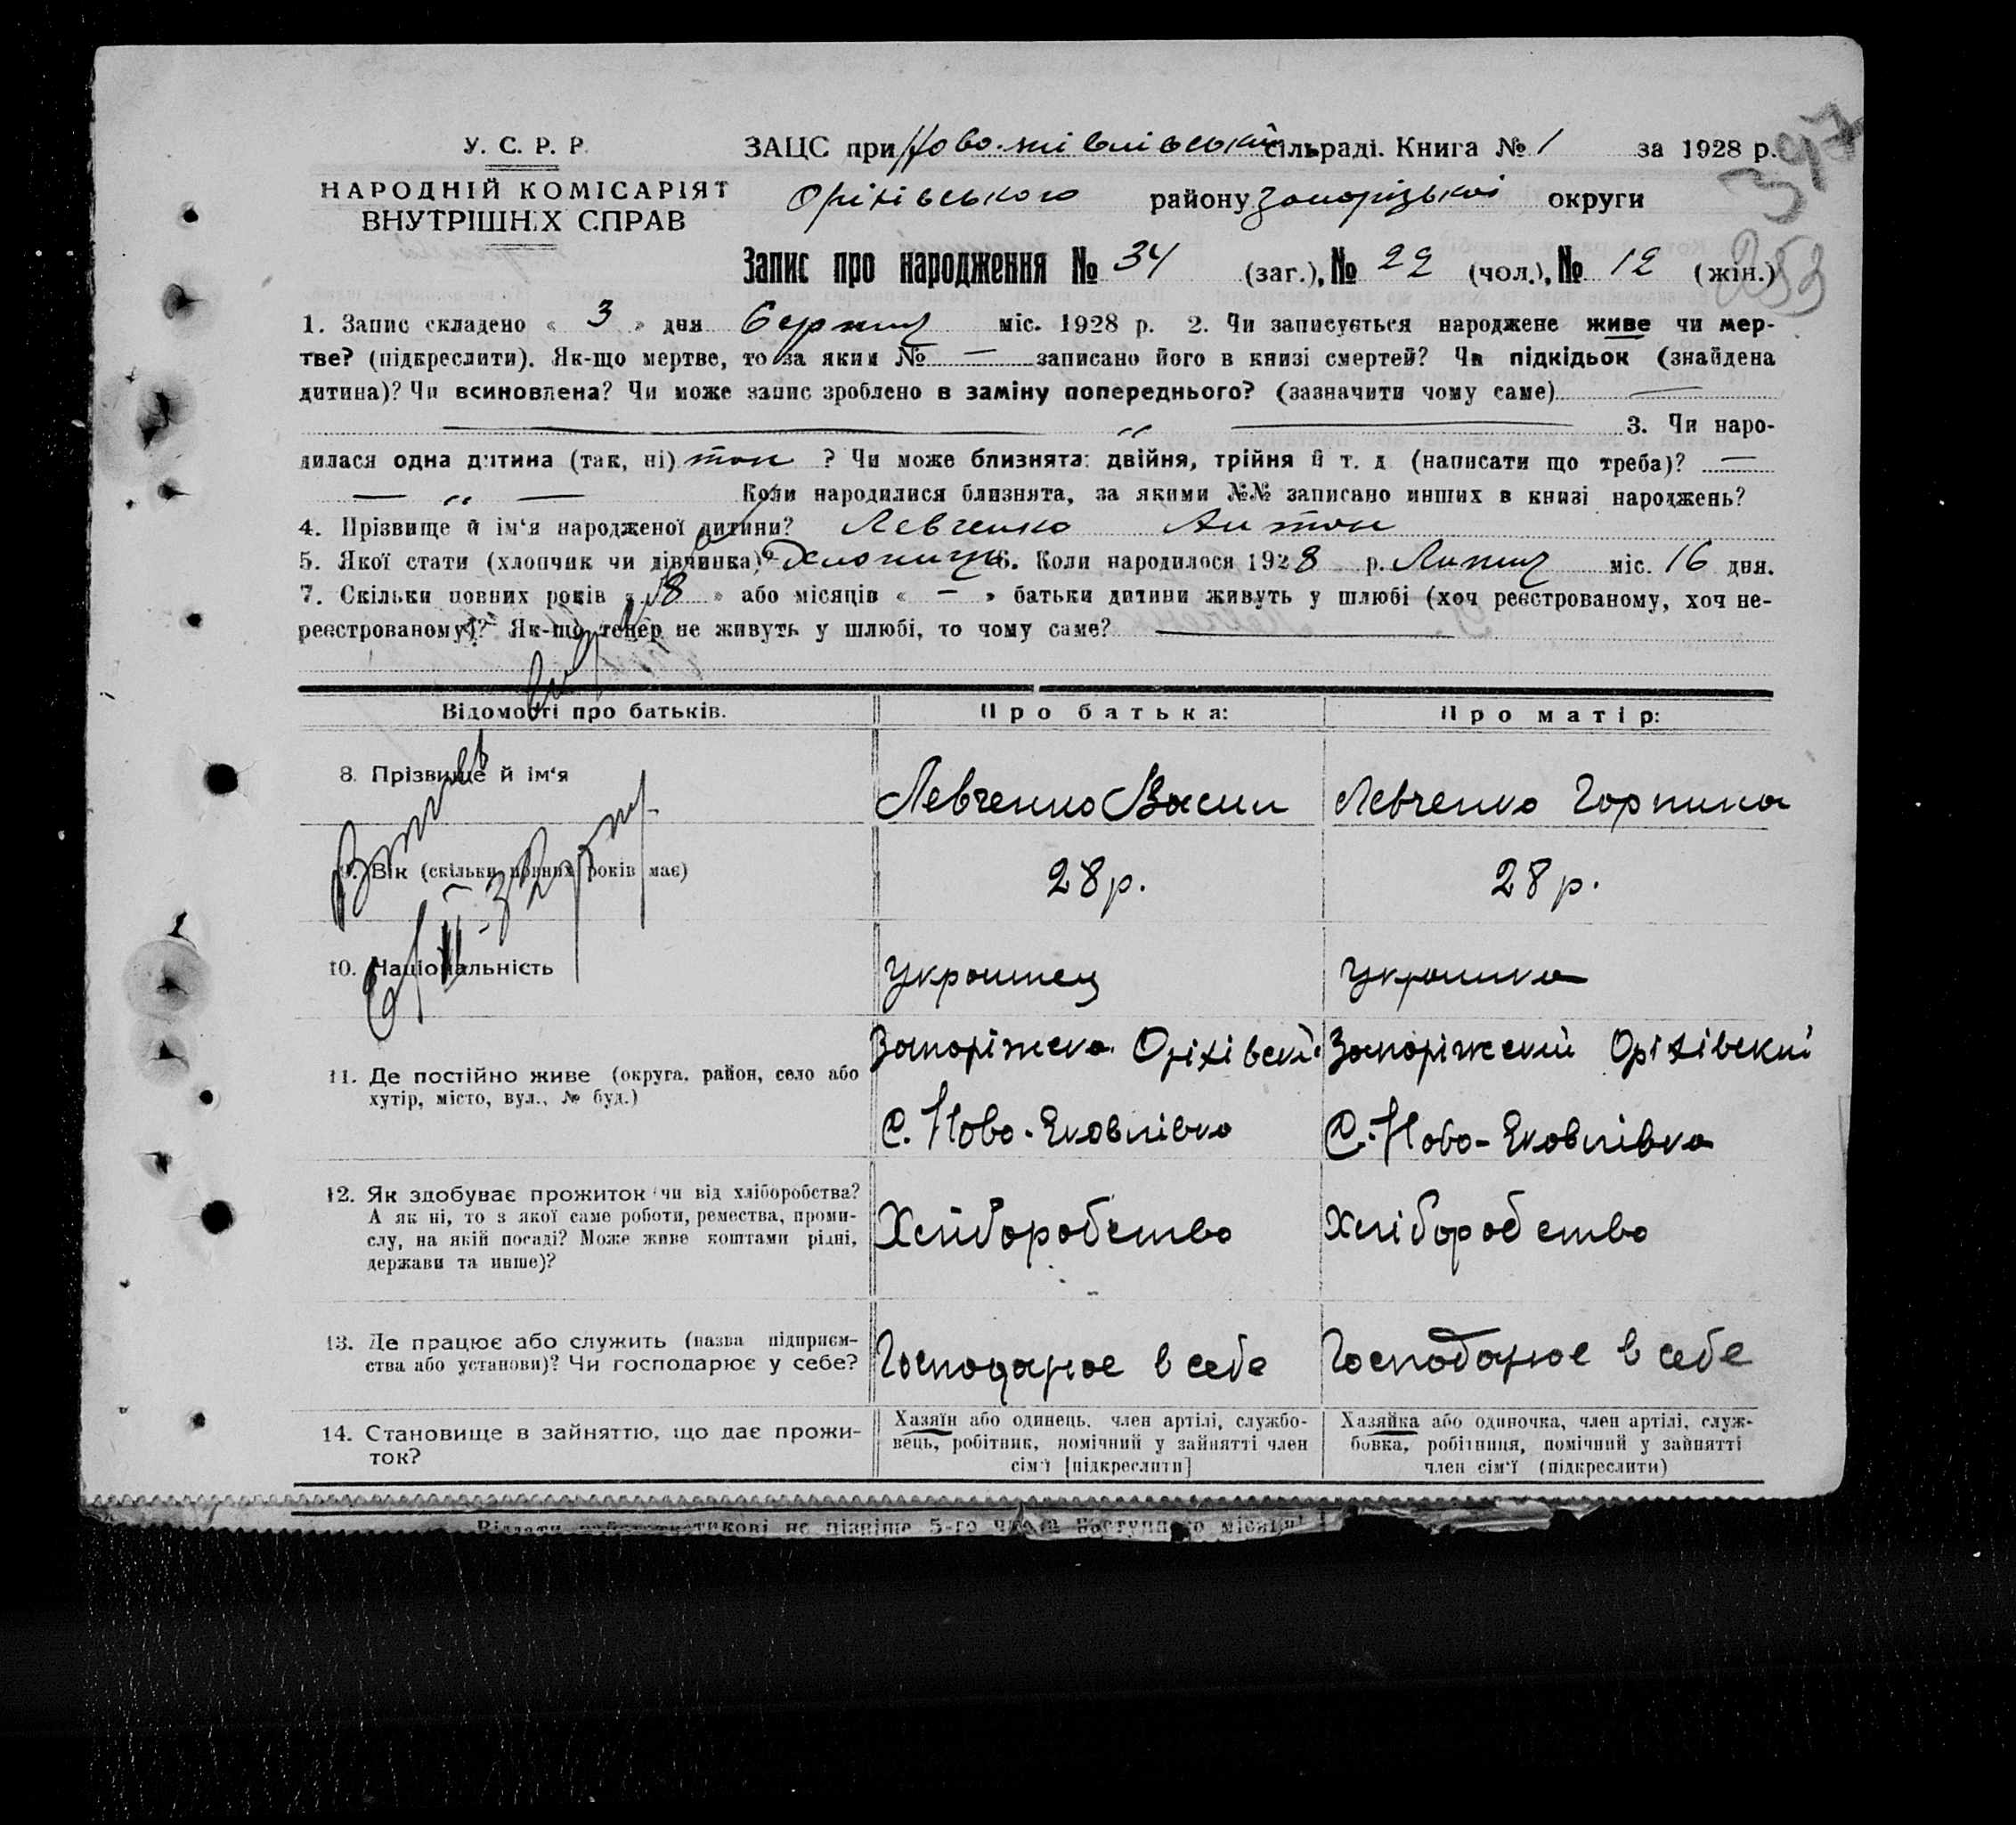 У. С. Р. Р.
НАРОДНІЙ КОМІСАРІЯТ
ВНУТРІШНІХ СПРАВ
ЗАЦС при сільраді. Книга № 1 за 1928 р.
Оріхівського району Запорізької округи
397
253
Запис про народження № 34 (заг.), № 22 (чол.), № 12 (жін.)
1. Запис складено « 3 » дня Серпня міс. 1928 р. 2. Чи записується народжене живе чи мер-
тве? (підкреслити). Як-що мертве, то за яким № — записано його в книзі смертей? Чи підкідьок (знайдена
дитина)? Чи всиновлена? Чи може запис зроблено в заміну попереднього? (зазначити чому саме) —
— „ — 3. Чи наро-
дилася одна дитина (так, ні) так ? Чи може близнята: двійня, трійня й т. д. (написати що треба)? —
— „ — Коли народилися близнята, за якими №№ записано инших в книзі народжень?
4. Прізвище й ім‘я народженої дитини? Левченко Антон
5. Якої стати (хлопчик чи дівчинка)? 6. Коли народилося 1928 р. Липня міс. 16 дня.
7. Скільки повних років « 8 » або місяців « — » батьки дитини живуть у шлюбі (хоч реєстрованому, хоч не-
реєстрованому)? Як-що тепер не живуть у шлюбі, то чому саме? —
Відомості про батьків. Про батька: Про матір:
8. Прізвище й ім‘я Левченко Васил Левченко Горпина
9. Вік (скільки повних років має) 28 р. 28 р.
10. Національність Українец Українка
11. Де постійно живе (округа, район, село або
хутір, місто, вул., № буд.)
Запоріжска Оріхівский Запоріжский Оріхівский
С. Ново-Яковлівка С. Ново-Яковлівка
12. Як здобуває прожиток чи від хліборобства?
А як ні, то з якої саме роботи, ремества, проми-
слу, на якій посаді? Може живе коштами рідні,
держави та инше)?
Хліборобство Хліборобство
13. Де працює або служить (назва підприєм-
ства або установи)? Чи господарює у себе?
Господарює в себе Господарює в себе
14. Становище в зайняттю, що дає прожи-
ток?
Хазяїн або одинець, член артілі, службо-
вець, робітник, помічний у зайнятті член
сім‘ї [підкреслити]
Хазяйка або одиночка, член артілі, служ-
бовка, робітниця, помічний у зайнятті
член сім‘ї (підкреслити)
не пізніше 5-го числа наступного місяця!